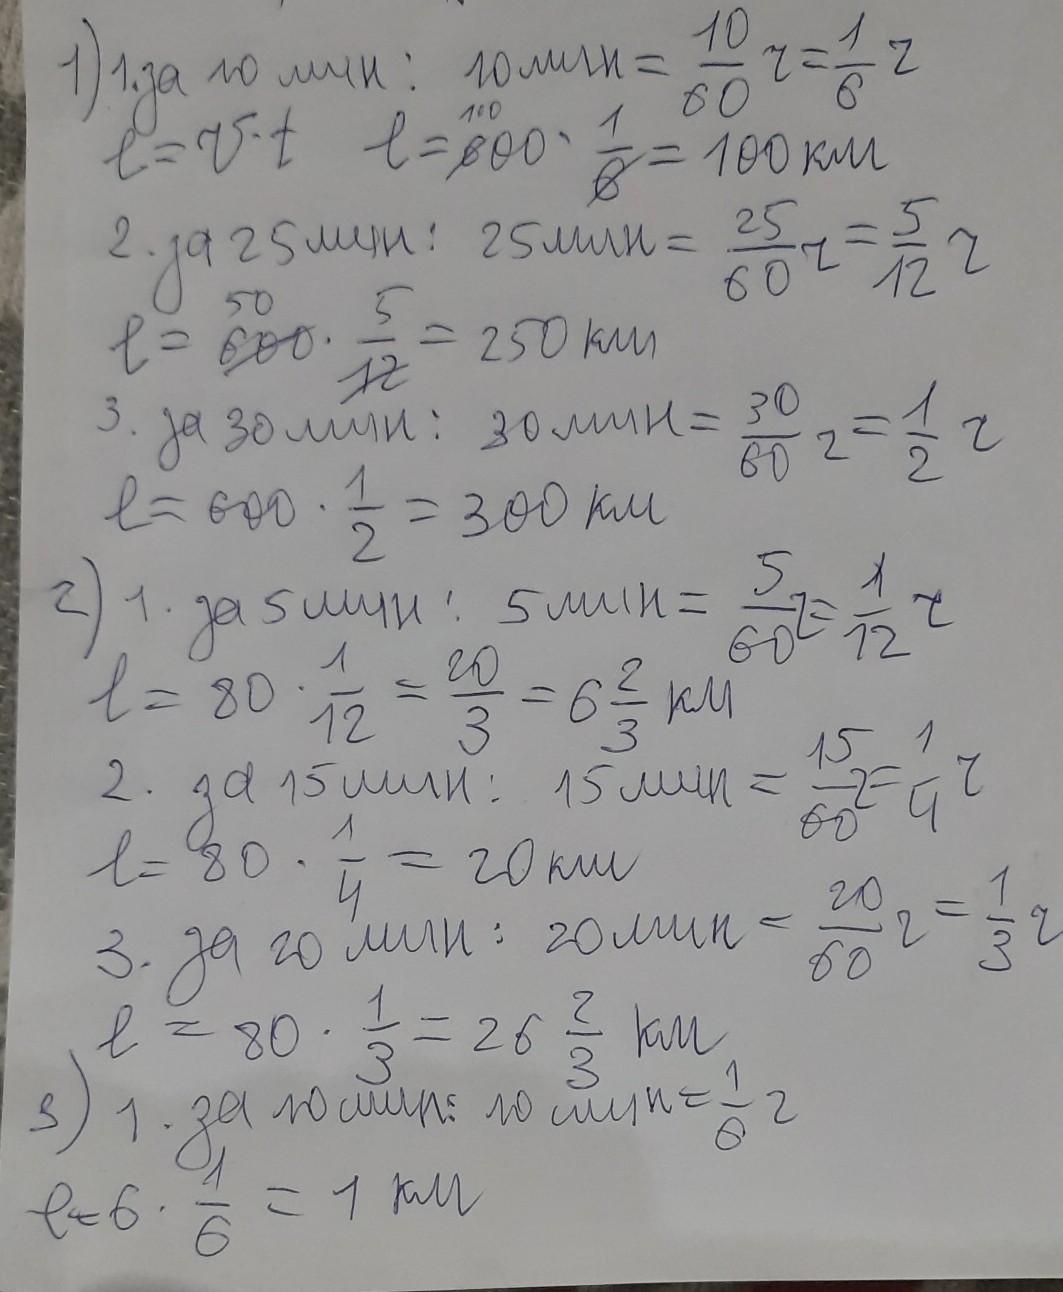 1) 1. за 10 мин: 10 мин = 10/60 ч = 1/6 ч
l = v·t l = 600 · 1/6 = 100 км
100
2. за 25 мин: 25 мин = 25/60 ч = 5/12 ч
50
l = 600 · 5/12 = 250 км
3. за 30 мин: 30 мин = 30/60 ч = 1/2 ч
l = 600 · 1/2 = 300 км
2) 1. за 5 мин: 5 мин = 5/60 ч = 1/12 ч
l = 80 · 1/12 = 20/3 = 6 2/3 км
2. за 15 мин: 15 мин = 15/60 ч = 1/4 ч
l = 80 · 1/4 = 20 км
3. за 20 мин: 20 мин = 20/60 ч = 1/3 ч
l = 80 · 1/3 = 26 2/3 км
3) 1. за 10 мин: 10 мин = 1/6 ч
l = 6 · 1/6 = 1 км